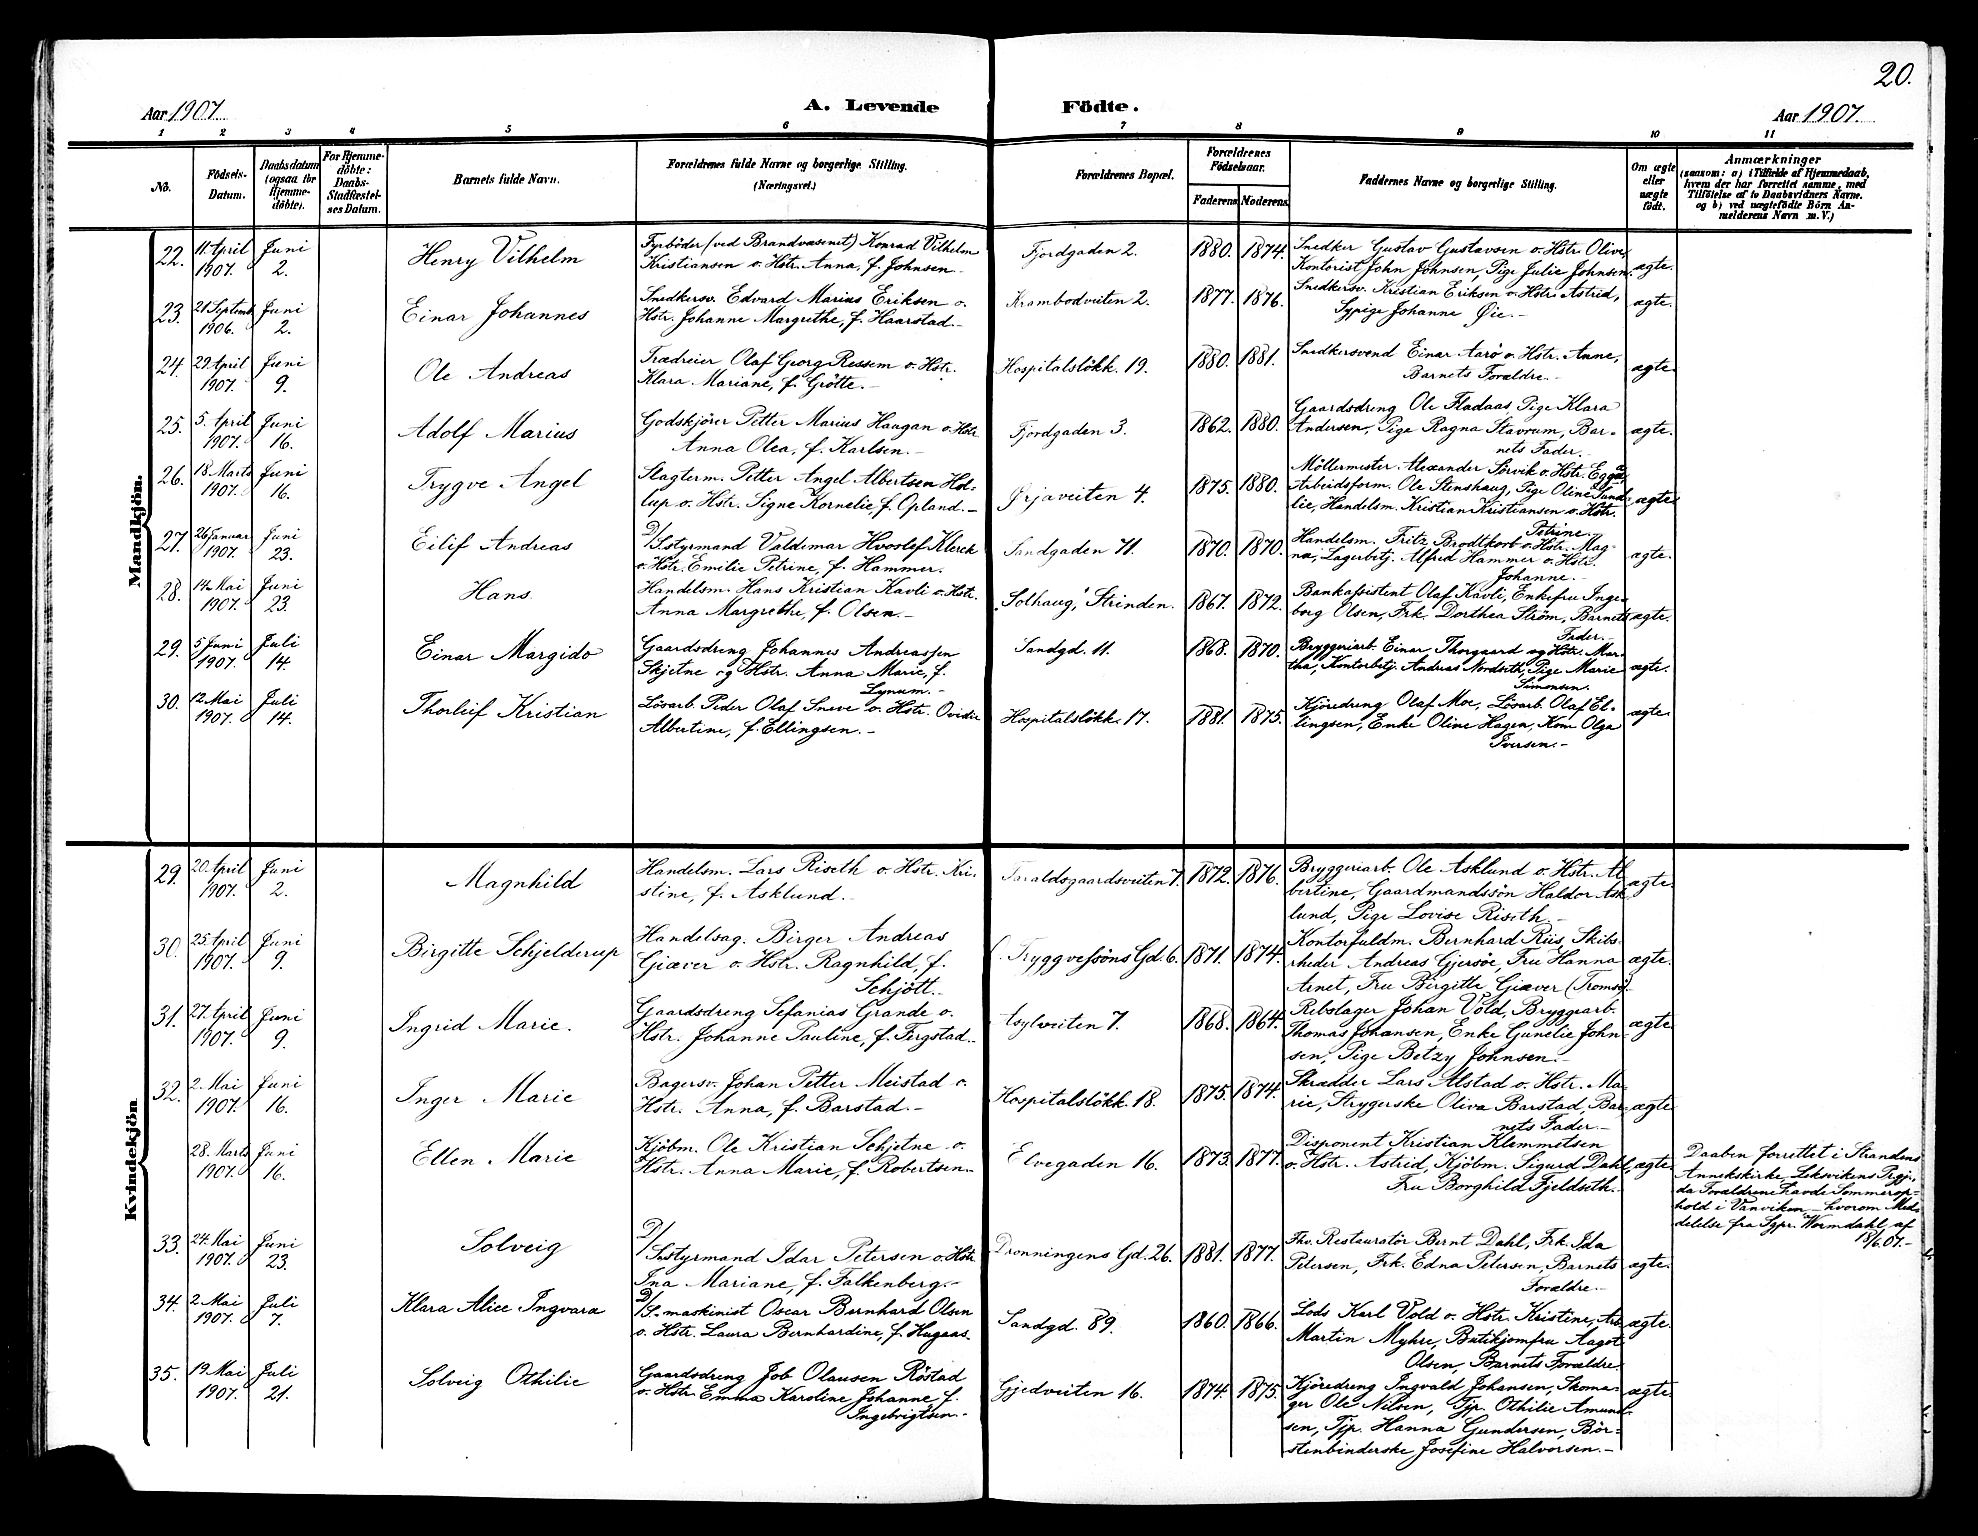 20.
Aar 1907. A. Levende Födte. Aar 1907.
1 2 3 4 5 6 7 8 9 10 11
No.
Födsels-
Datum.
Daabsdatum
(ogsaa for
Hjemme-
döbte).
For Hjemme-
döbte:
Daabs-
Stadfæstel-
ses Datum.
Barnets fulde Navn.
Forældrenes fulde Navne og borgerlige Stilling.
(Næringsvei.)
Forældrenes Bopæl.
Forældrenes
Födselsaar.
Faderens Moderens
Faddernes Navne og borgerlige Stilling.
Om ægte
eller
uægte
födt.
Anmærkninger
(saasom: a) i Tilfælde af Hjemmedaab,
hvem der har forrettet samme, med
Tilföielse af to Daabsvidners Navne.
og b) ved uægtefödte Börn An-
melderens Navn m. V.)
Mandkjön.
22. 11 April
1907. Juni
2. Henry Vilhelm
Fyrböder (ved Brandvæsenet) Konrad Vilhelm
Kristiansen o. Hstr. Anna, f. Johnsen.-
Fjordgaden 2. 1880. 1874.
Snedker Gustav Gustavsen o. Hstr. Olive,
Kontorist John Johnsen, Pige Julie Johnsen. ægte.
23. 21 Septemb.
1906. Juni
2. Einar Johannes
Snedkersv. Edvard Marius Eriksen o.
Hstr. Johanne Margrethe, f. Haarstad.-
Krambodveiten 2. 1877. 1876.
Snedkersv. Kristian Eriksen o. Hstr. Astrid,
Sypige Johanne Øie.- ægte.
24. 29 April
1907. Juni
9. Ole Andreas
Trædreier Olaf Georg Ressem o. Hstr.
Klara Mariane, f. Grötte.-
Hospitalslökk. 19. 1880. 1881.
Snedkersvend Einar Aarö o. Hstr. Anne,
Barnets Forældre.- ægte.
25. 5. April
1907. Juni
16. Adolf Marius
Godskjörer Petter Marius Haagan o. Hstr.
Anna Olea, f. Karlsen.-
Fjordgaden 3. 1862. 1880.
Gaardsdreng Ole Fladaas, Pige Klara
Andersen, Pige Ragna Stavrum, Bar-
nets Fader.- ægte.
26. 18. Marts
1907. Juni
16. Trygve Angel
Slagterm. Petter Angel Albertsen Hol-
lup o. Hstr. Signe Kornelie f. Opland.-
Ørjaveiten 4. 1875. 1880.
Möllermester Alexander Sörvik o. Hstr. Egga,
Arbeidsform. Ole Stenshaug, Pige Oline Sund-
lie, Handelsm. Kristian Kristiansen o. Hstr.
Petrine.- ægte
27. 26 Januar
1907. Juni
23. Eilif Andreas
D/
/S.styrmand Valdemar Hvoslef Klerck
o. Hstr. Emilie Petrine, f. Hammer.
Sandgaden 71. 1870. 1870.
Handelsm. Fritz Brodtkorb o. Hstr. Mag-
na, Lagerbetj. Alfred Hammer o. Hstr.
Johanne.- ægte.
28. 14 Mai
1907. Juni
23. Hans.
Handelsm. Hans Kristian Kavli o. Hstr.
Anna Margrethe, f. Olsen.-
"Solhaug", Strinden. 1867. 1872.
Bankassistent Olaf Kavli, Enkefru Inge-
borg Olsen, Frk. Dorthea Ström, Barnets
Fader.- ægte.
29. 5 Juni
1907. Juli
14. Einar Margido
Gaardsdreng Johannes Andreassen
Skjetne og Hstr. Anna Marie, f.
Lynum.-
Sandgd. 11. 1868. 1870.
Bryggeriarb. Einar Thorgaard og Hstr. Mar-
tha, Kontorbetj. Andreas Nordseth, Pige Marie
Simonsen. ægte.
30. 12 Mai
1907. Juli
14. Thorleif Kristian
Lösarb. Peder Olaf Sneve o. Hstr. Ovidie
Albertine, f. Ellingsen.-
Hospitalslökk. 17. 1881. 1875.
Kjöredreng Olaf Moe, Lösarb. Olaf El-
lingsen, Enke Oline Hagen, Kone Olga
Iversen.- ægte.
Kvindekjön
29. 20. April
1907. Juni
2. Magnhild
Handelsm. Lars Riseth o. Hstr. Kri-
stine, f. Asklund.-
Taraldsgaardsveiten 7. 1872. 1876.
Bryggeriarb. Ole Asklund o. Hstr. Al-
bertine, Gaardmandssön Haldor Ask-
lund, Pige Lovise Riseth.- ægte.
30. 25. April
1907. Juni
9. Birgitte Schjelderup
Handelsag. Birger Andreas
Giæver o. Hstr. Ragnhild, f.
Schjött.-
Tryggvessöns Gd. 6. 1871. 1874.
Kontorfuldm. Bernhard Riis, Skibs-
rheder Andreas Gjersöe, Fru Hanna
Arnet, Fru Birgitte Giæver (Tromsö). ægte.
31. 27. April
1907. Juni
9. Ingrid Marie.
Gaardsdreng Sefanias Grande o.
Hstr. Johanne Pauline, f. Fergstad.-
Asylveiten 7. 1868. 1864.
Rebslager Johan Vold, Bryggarb.
Thomas Johansen, Enke Gunelie John-
sen, Pige Betzy Johnsen.- ægte
32. 2. Mai
1907. Juni
16. Inger Marie
Bagersv. Johan Petter Meistad o.
Hstr. Anna, f. Barstad.-
Hospitalslökk. 18. 1875. 1874.
Skrædder Lars Alstad o. Hstr. Ma-
rie, Strygerske Oliva Barstad, Bar-
nets Fader.- ægte
28. Marts
1907. Juni
16. Ellen Marie
Kjöbm. Ole Kristian Schjetne o.
Hstr. Anna Marie, f. Robertsen.-
Elvegaden 16. 1873. 1877.
Disponent Kristian Klemmetsen
o. Hstr. Astrid, Kjöbm. Sigurd Dahl,
Fru Borghild Fjeldseth.- ægte
Daaben forrettet i Strandens
Annekskirke, Leksvikens Prgj.,
da Forældrene havde Sommerop-
hold i Vanviken - hvorom Med-
delelse fra Sgpr. Wormdahl, af
18/6.07.-
33. 24. Mai
1907. Juni
23. Solveig
D/
/S.styrmand Idar Petersen o. Hstr.
Ina Mariane, f. Falkenberg.-
Dronningens Gd. 26. 1881. 1877.
Fhv. Restauratör Bernt Dahl, Frk. Ida
Petersen, Frk. Edna Petersen, Barnets
Forældre.- ægte.
34. 2. Mai
1907. Juli
7. Klara Alice Ingvara
D/
/S-maskinist Oscar Bernhard Olsen
o. Hstr. Laura Bernhardine, f. Hugaas.
Sandgd. 89. 1860. 1866.
Lods Karl Vold o. Hstr. Kristine, Arb.
Martin Myhre, Butikjomfru Aagot
Olsen, Barnets Forældre. ægte.
35. 19. Mai
1907. Juli
21. Solveig Othilie
Gaardsdreng Job Olausen Röstad
o. Hstr. Emma Karoline Johanne, f.
Ingebrigtsen.-
Gjedveiten 16. 1874. 1875.
Kjöredreng Ingvald Johansen, Skoma-
ger Ole Nilsen, Tjp. Othilie Amund-
sen, Tjp. Hanna Gundersen, Bör-
stenbinderske Josefine Halvorsen.- ægte.